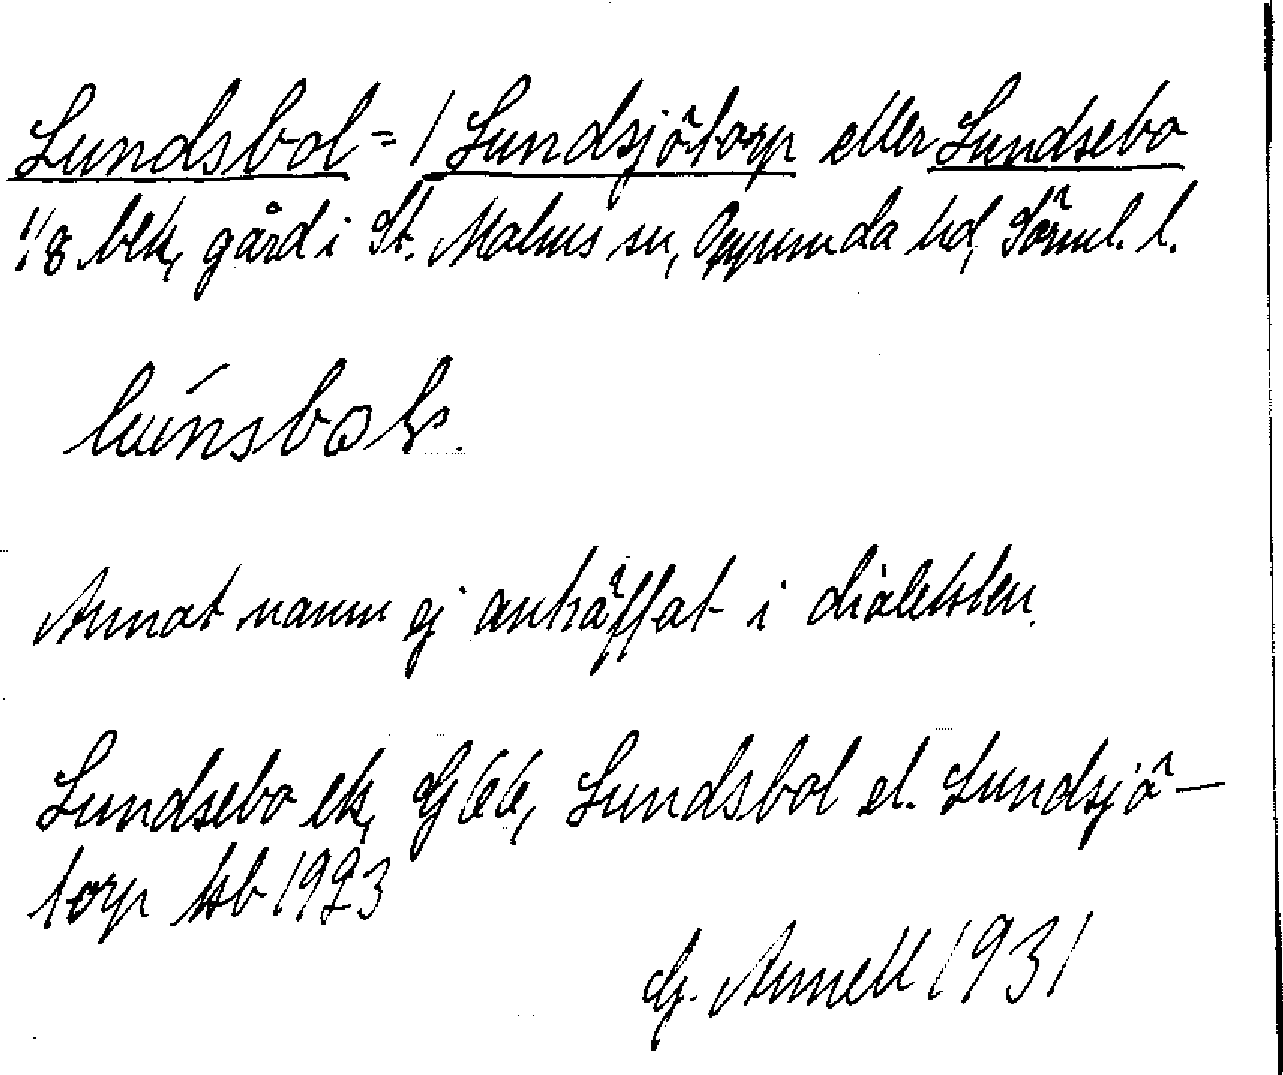 Lundsbol = / Lundsjötorp eller Lundsebo
1/8 blk, gård i St. Malms sn, Oppunda hd, Sörml. l.
Annat namn ej anträffat i dialekten.
Lundsebo ek, GEK, Lundsbol el. Lundsjö-
torp Hsb 1923
G. Arnell 1931